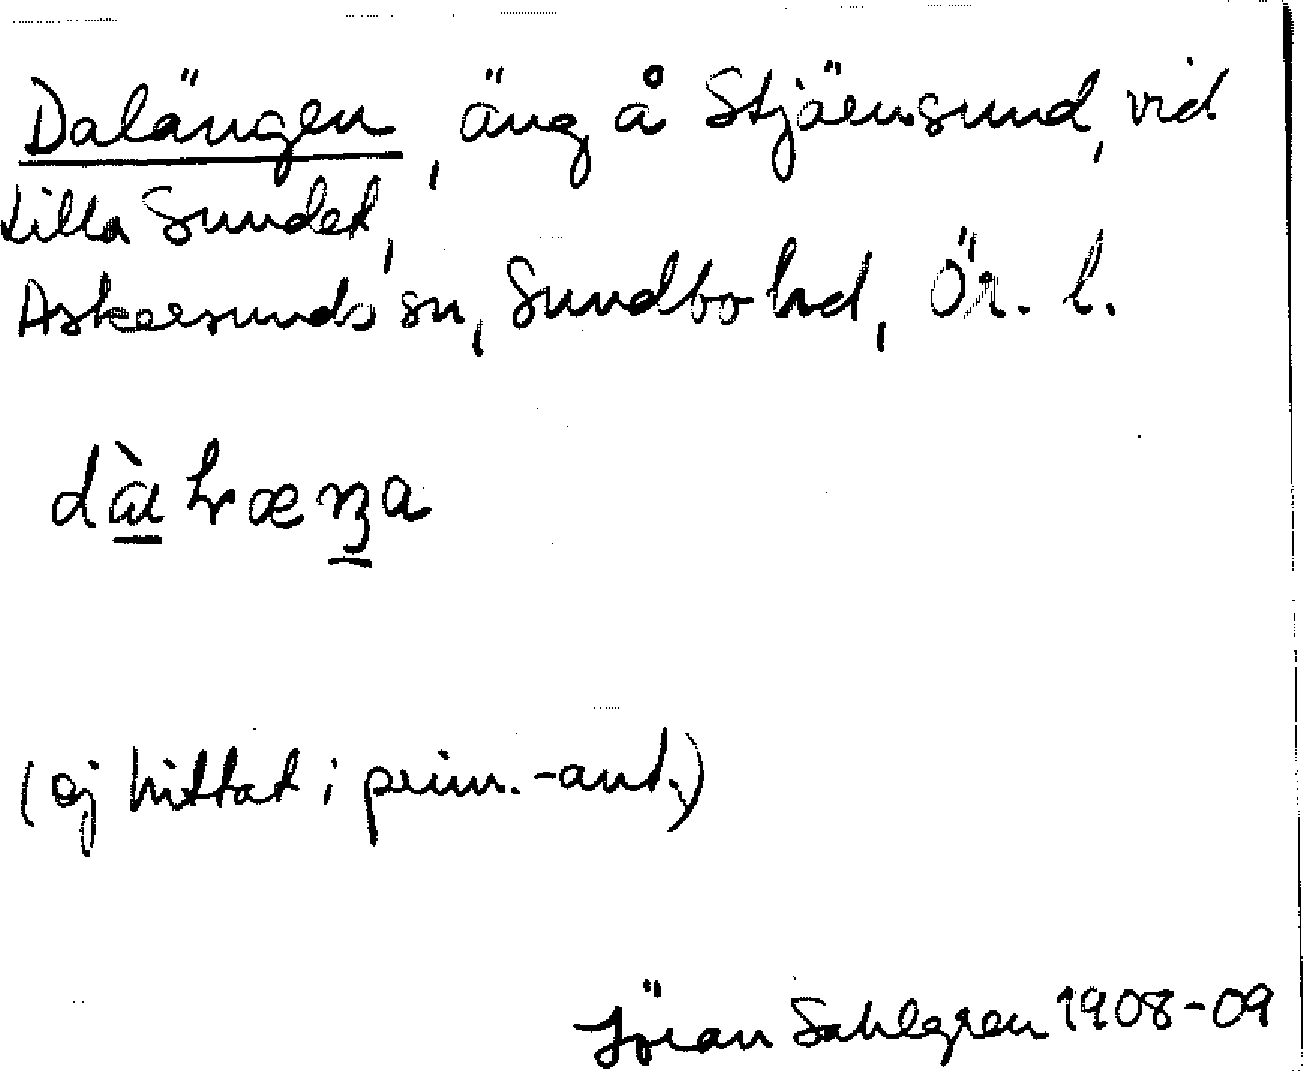 Dalängen, äng å Stjärnsund, vid
Lilla Sundet,
Askersunds sn, Sundbo hd, Ör. l.
(ej hittat i prim.-ant.)
Jöran Sahlgren 1908-09